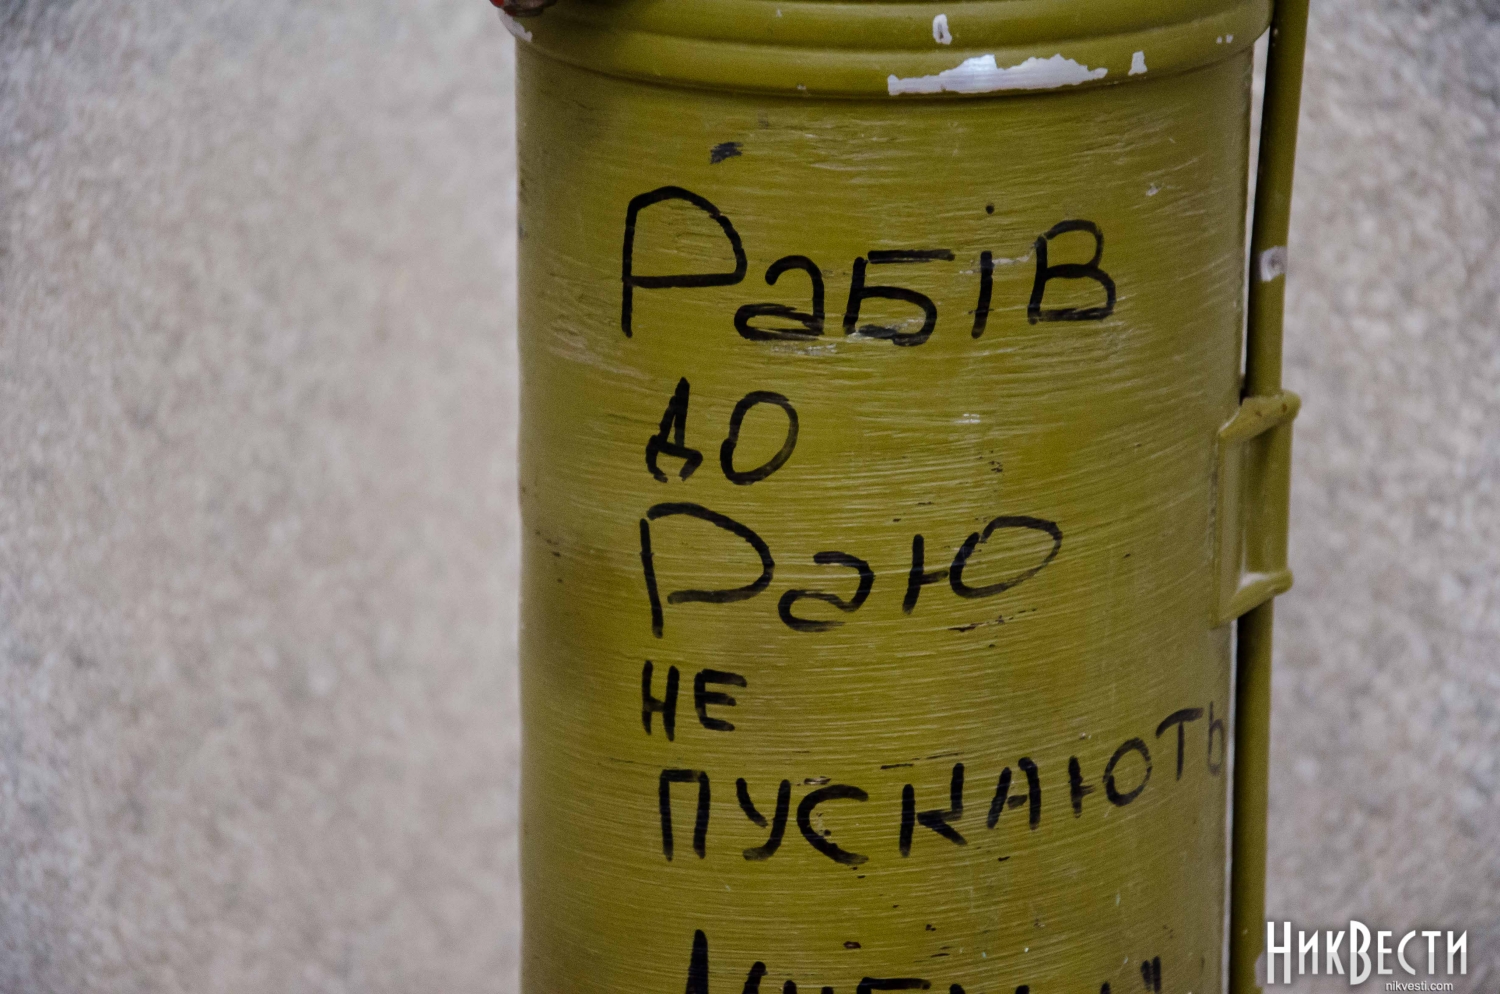 Рабів
до
Раю
не
пускають
НикВести
nikvesti.com